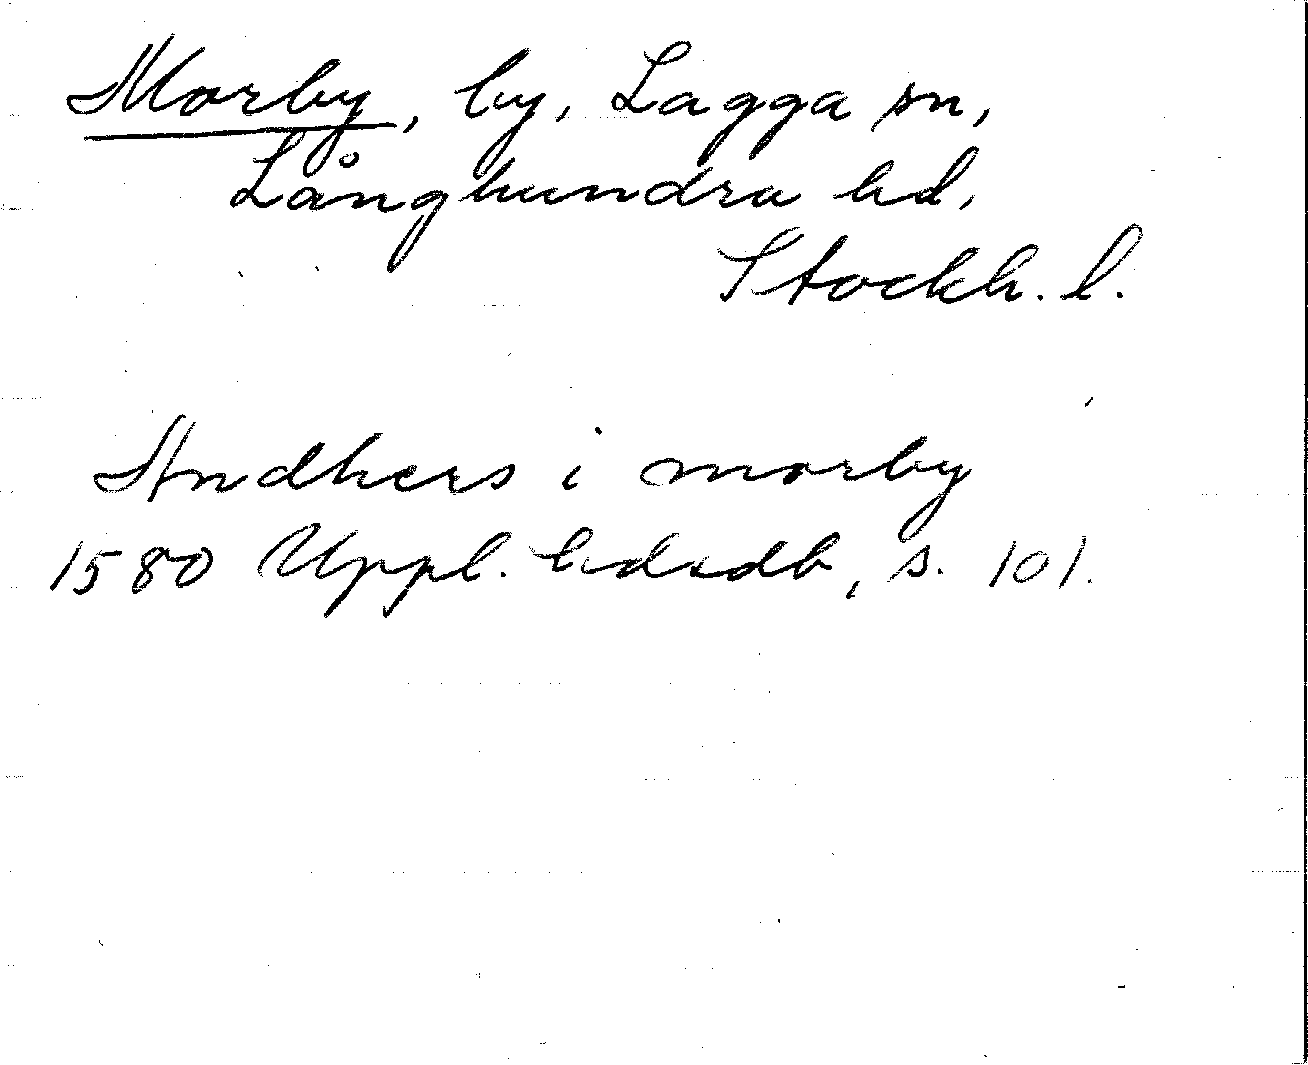 Morby, by, Lagga sn,
Långhundra hd,
Stockh. l.
Andhers i morby
1580 Uppl. hdsdb, s. 101.